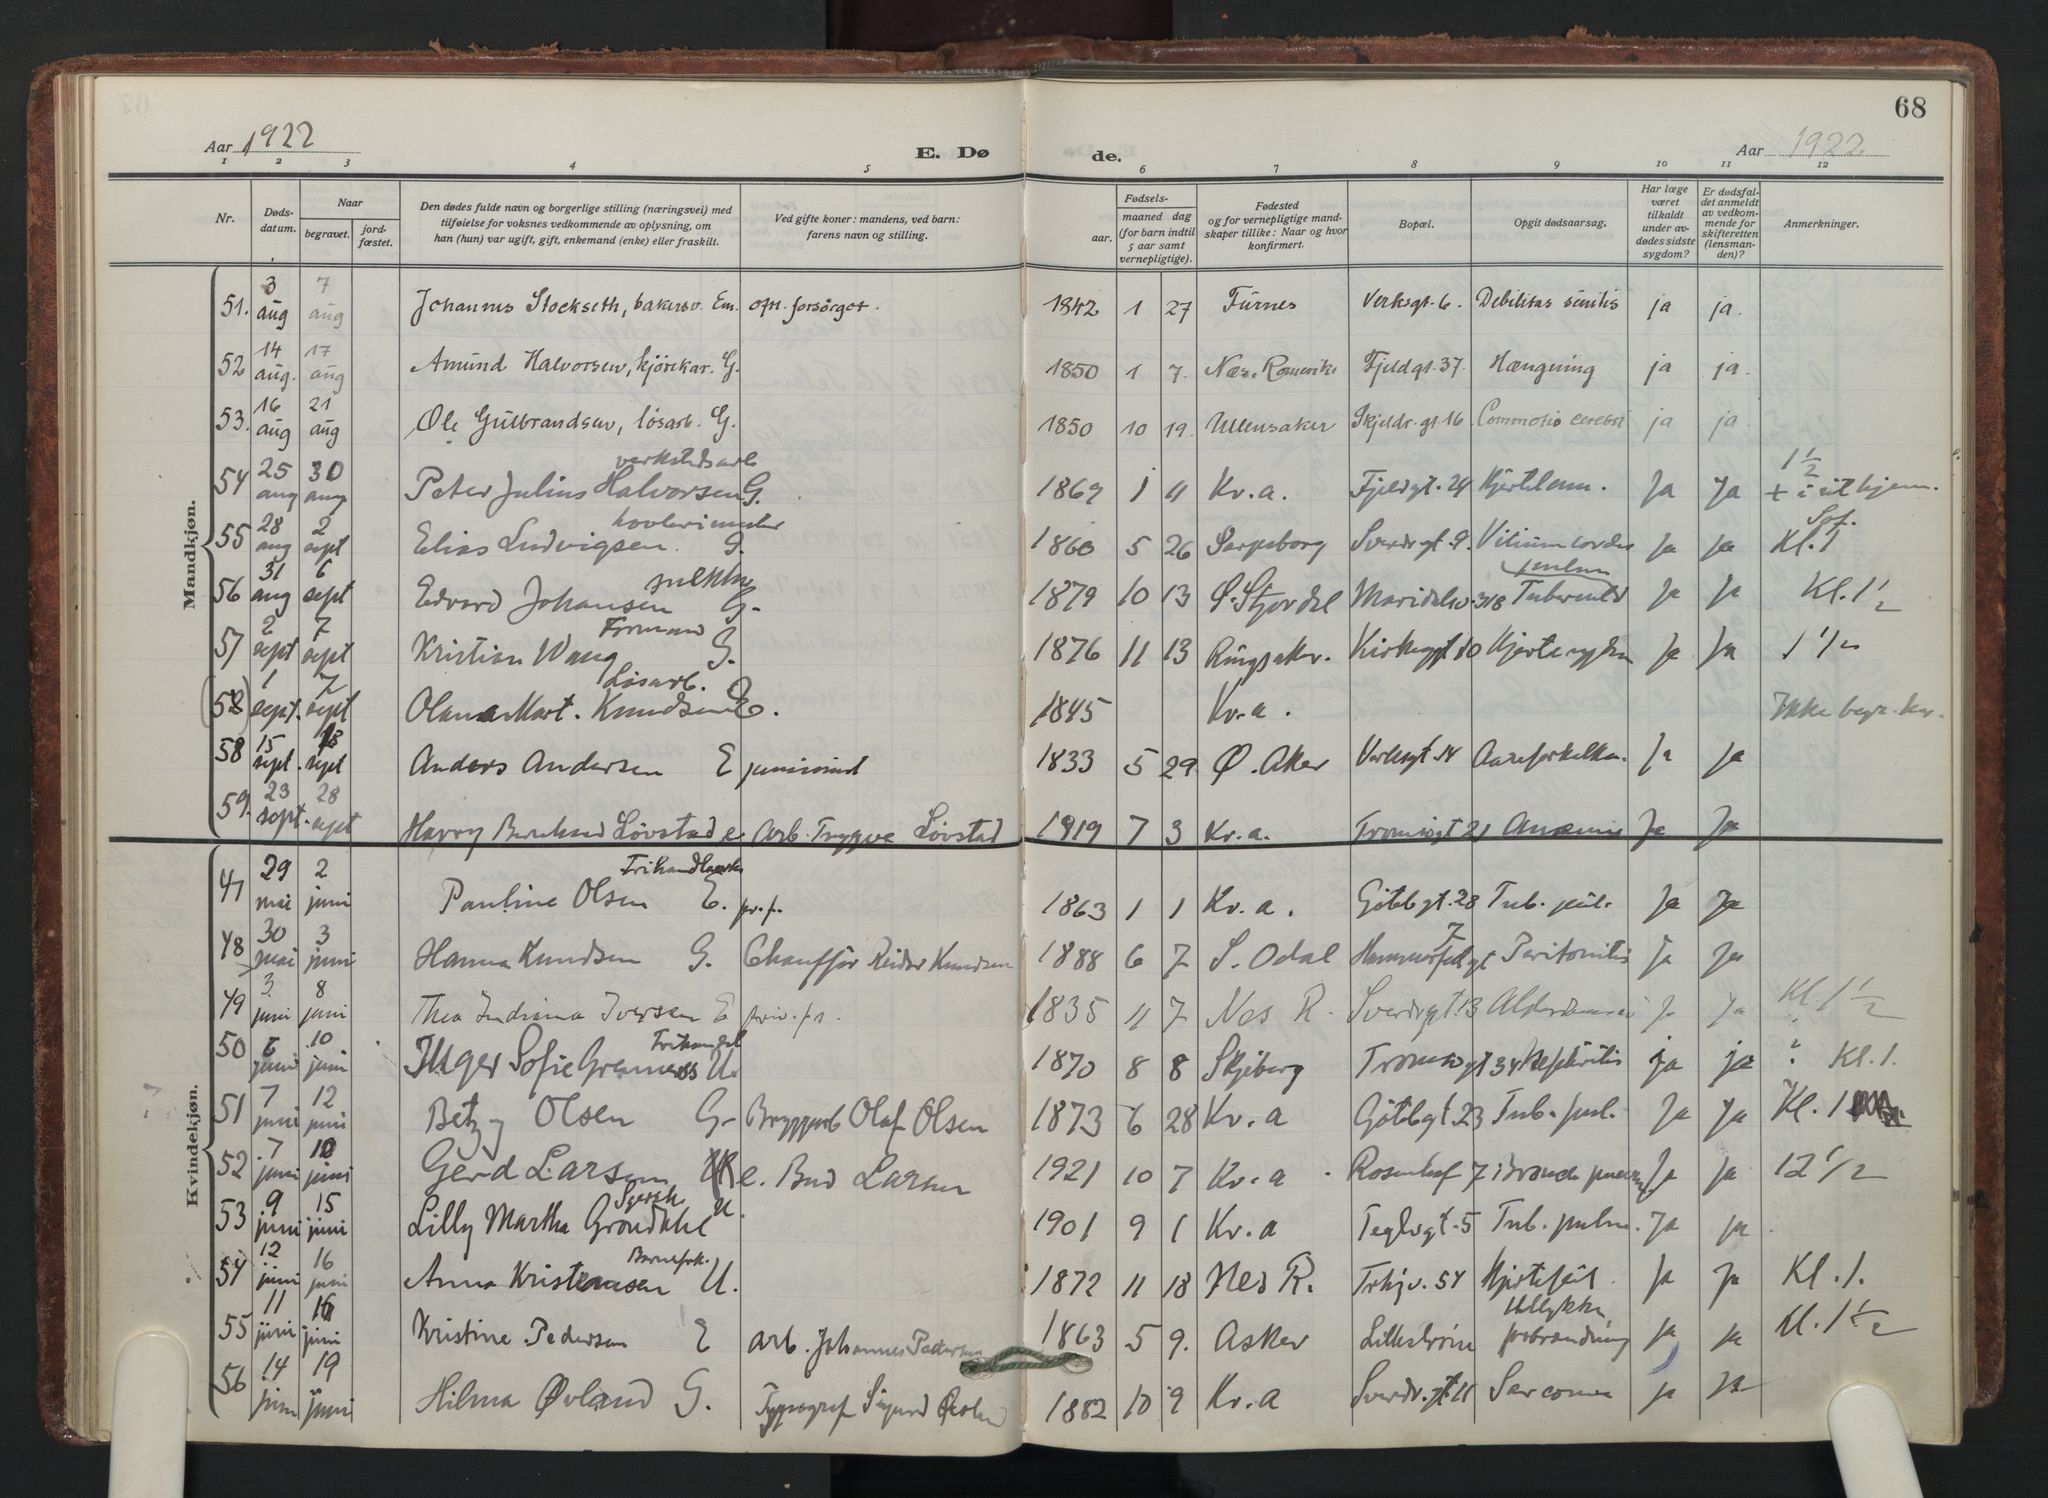 68
Aar 1922
E. Dø de.
Aar 1922
1 2 3 4 5 6 7 8 9 10 11 12
Nr.
Døds-
datum.
Naar
begravet.
jord-
fæstet.
Den dødes fulde navn og borgerlige stilling (næringsvei) med
tilføielse for voksnes vedkommende av oplysning, om
han (hun) var ugift, gift, enkemand (enke) eller fraskilt.
Ved gifte koner: mandens, ved barn:
farens navn og stilling.
Fødsels-
aar.
maaned dag
(for barn indtil
5 aar samt
vernepligtige).
Fødested
og for vernepligtige mand-
skaper tillike: Naar og hvor
konfirmert.
Bopæl.
Opgit dødsaarsag.
Har læge
været
tilkaldt
under av-
dødes sidste
sygdom?
Er dødsfal-
det anmeldt
av vedkom-
mende for
skifteretten
(lensman-
den)?
Anmerkninger.
Mandkjøn.
51. 3 aug 7 aug Johannes Stockseth, bakersv. Em. ofn. forsørget. 1842 1 27 Furnes Verksgt. 6. Debilitas senilis ja ja.
52 14 aug. 17 aug Amund Halvorsen, kjørekar. G. 1850 1 7. Næs. Romerike Fjeldgt. 37. Hængning ja ja.
53. 16 aug 21 aug Ole Gulbrandsen, løsarb. G. 1850 10 19. Ullensaker Skjeldr. gt. 16 Commotio cerebri ja ja.
verkstedsarb
54 25 aug 30 aug Peter Julius Halvorsen G. 1869 1 11 Kv. a. Fjeldgt. 24 Ja Ja 1 1/2 +
55 28 aug 2 sept Elias Ludvigsen G. 1860 5 26 Sarpsborg Sverdr. gt. 9. Vitium cordis Ja Ja Kl. 1
56 31 aug 6 sept Edvard Johansen G. 1879 10 13 Ø. Stjørdal Maridalsv. 318 Ja Ja Kl. 1 1/2
Formand
57 2 sept 7 sept Kristian Wang G. 1876 11 13 Ringsaker. Kirkegt 10 Ja Ja 1 1/2
Løsarb.
(58) 1 sept. 7 sept Olava Mart. Knudsen E. 1845 Kr. a. Ikke begr. her.
58 15 sept. 18 sept Anders Andersen E 1833 5 29 Ø. Aker Verksgt. 14 Aareforkalkn. Ja Ja
59. 23 sept. 28 sept Harry Bernhard Løvstad e. Arb. Trygve Løvstad 1919 7 3 Kr. a. Tromsøgt 21 Anæmie Ja Ja
Kvindekjøn.
47 29 mai 2 juni Pauline Olsen E. pr. f. 1863 1 1 Kr. a. Götebgt. 28 Tub. pul. Ja Ja
48 30 mai 3 juni Hanna Knudsen G. Chauffør Reidar Knudsen 1888 6 7 S. Odal Hammerfestgt 7 Peritonitis Ja Ja
49 3. juni 8 juni Thea Indiana Iversen E priv. fs. 1835 11 7 Nes R. Sverdrgt. 13 Ja Ja Kl. 1 1/2
50 6 juni 10 juni Inger Sofie U. 1870 8 8 Skjeberg Tromsøgt 34 Nephritis ja ja Kl. 1.
51 7 juni 12 juni Betzy Olsen G. Bryggearb Olaf Olsen 1873 6 28 Kr. a Götebgt. 23 Tub. pul. Ja Ja Kl. 1
52 7 juni 10 juni Gerd Larsen e. Bud Larsen 1921 10 7 Kr. a Rosenhof 7 Ja Ja 12 1/2
53 9 juni 15 juni Lilly Martha Grøndahl U. 1901 9 1 Kr. a Teglvgt. 5 Tub. pulm. Ja ja.
54 12 juni 16 juni Anna Kristensen U. 1872 11 18 Nes R. Trhjv. 54 Hjertefeil. Ja Ja Kl. 1.
Ulykke
55 11 juni 16 juni Kristine Pedersen E arb. Johannes Pedersen 1863 5 9. Asker Lillestrøm forbrænding ja ja Kl. 1 1/2
56 14 juni 19 juni Hilma Øvland G. Typograf Sigurd Øvland 1882 10 9 Kr. a Sverdr. gt. 11 Sarcoma ja Ja